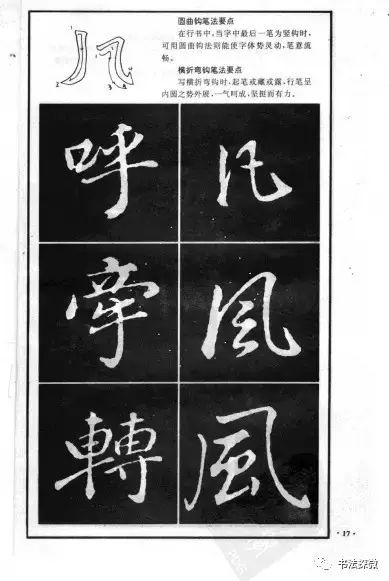 圆曲钩笔法要点
在行书中,当字中最后一笔为竖钩时,
可用圆曲钩法则能使字体势灵动,笔意流
畅。
横折弯钩笔法要点
写横折弯钩时,起笔或藏或露,行笔呈
内圆之势外展,一气呵成,坚挺而有力。
呼
牵
轉
风
風
·17·
书法探教